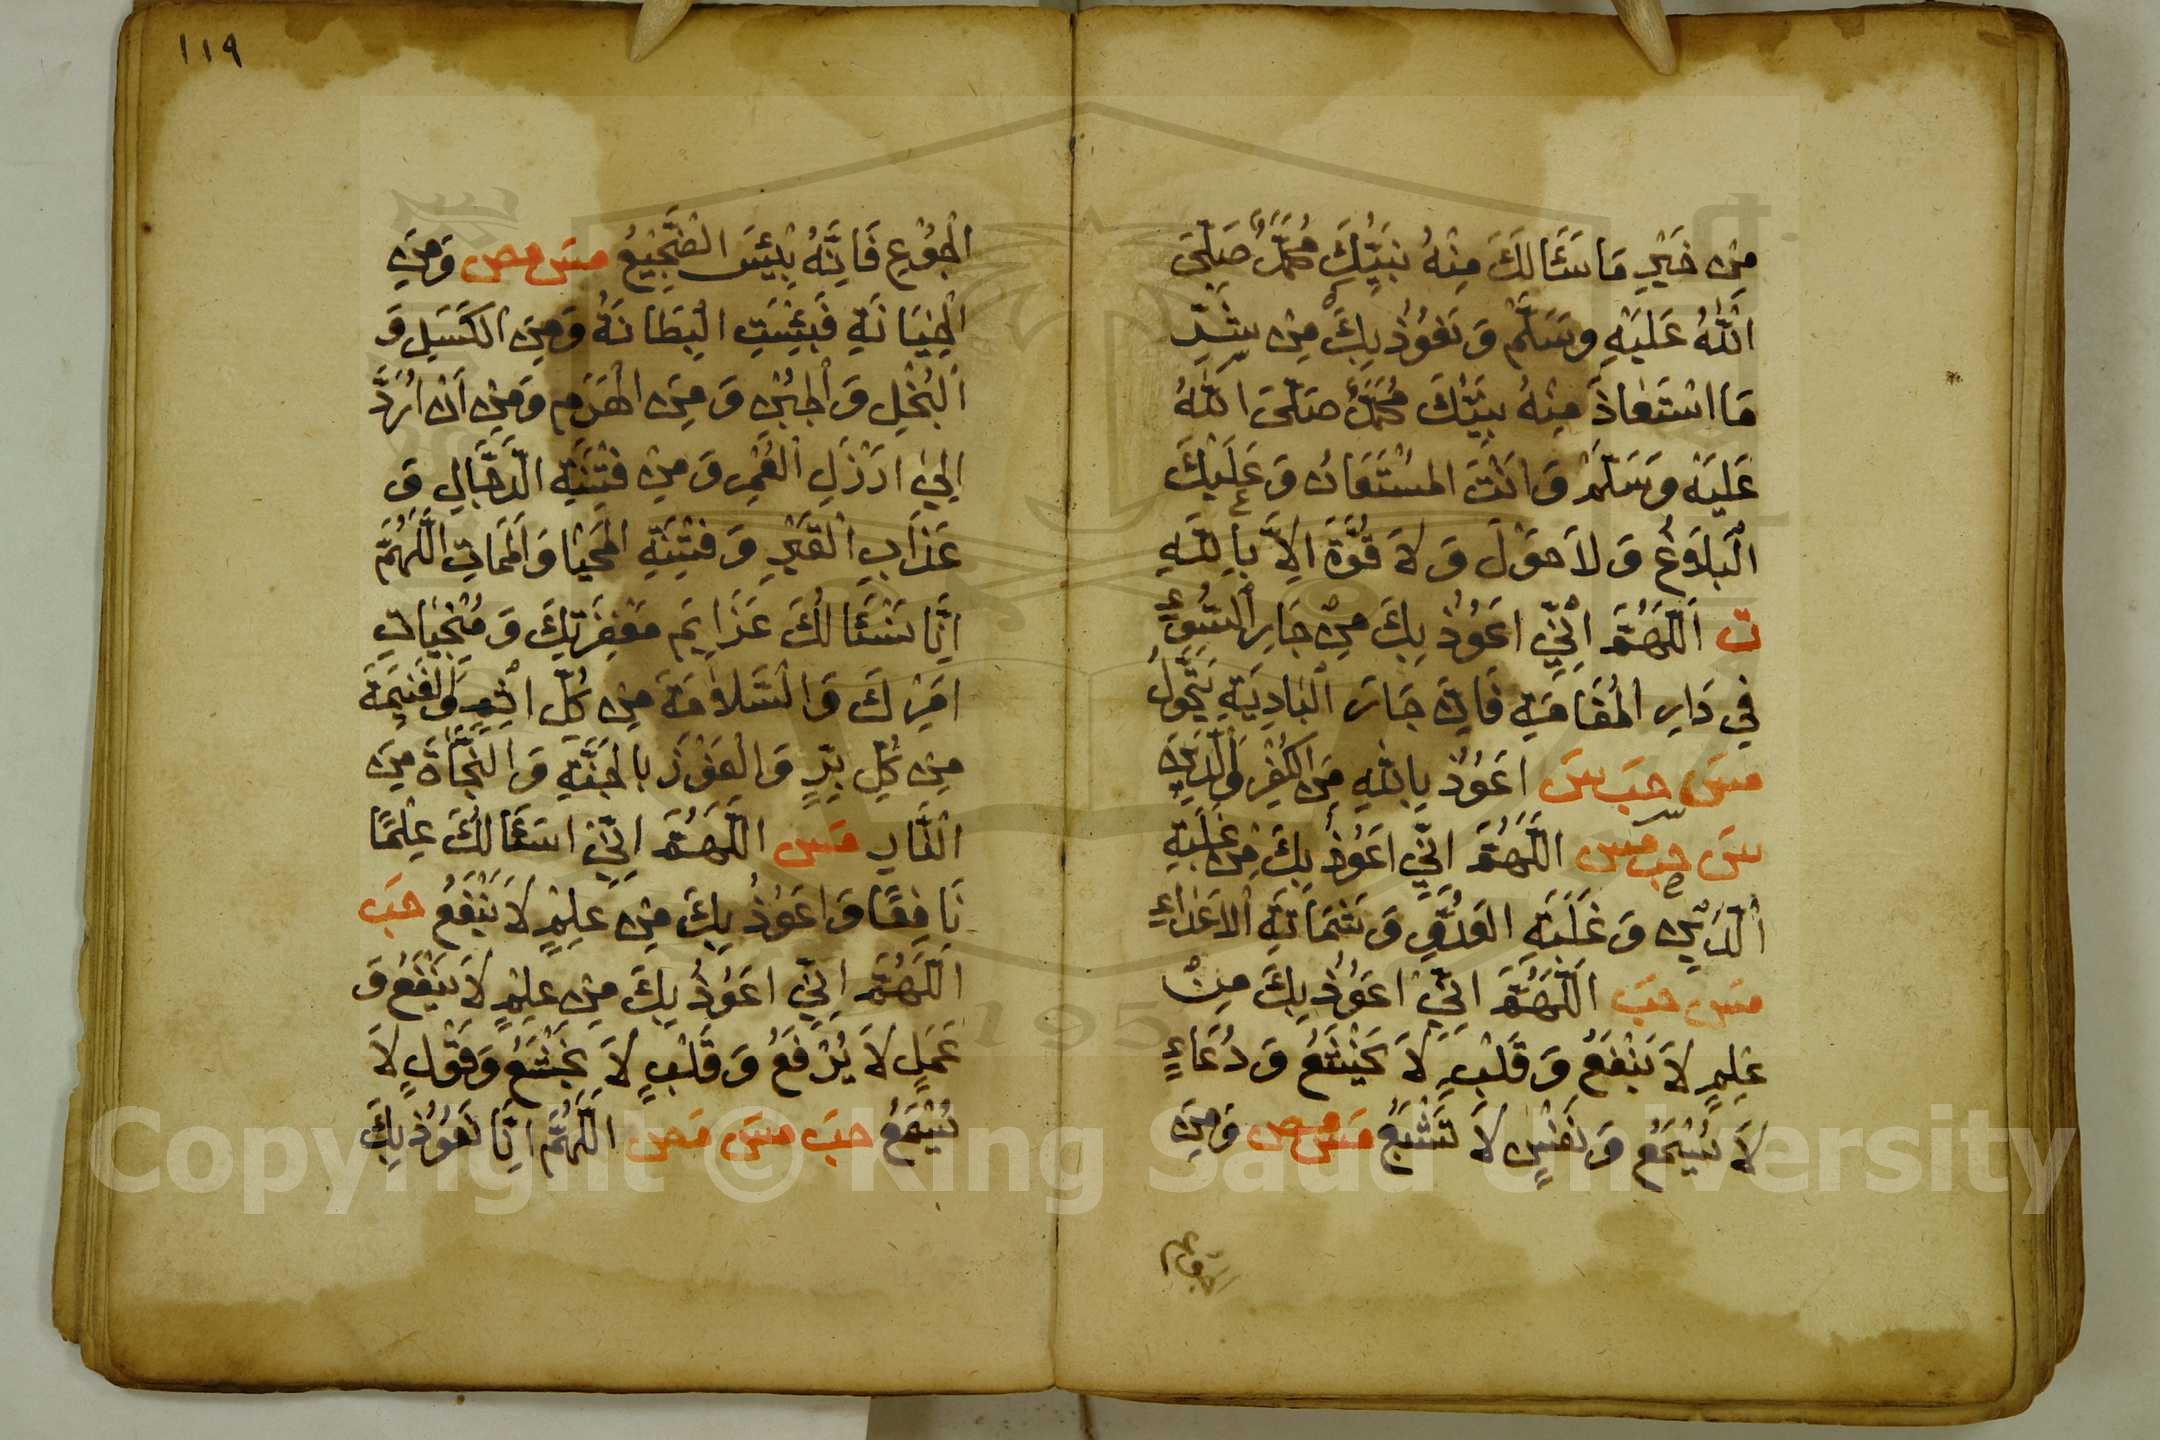 مِنْ خَيْرِ مَا سَئَالَكَ مِنْهُ نَبِيُّكَ مُحَمَّدٌ صَلَّىَ
اَللّٰهُ عَلَيْهِ وَسَلَّمْ وَنَعُوْذُ بِكَ مِنْ شَرِّ
مَا اسْتَعَاذَ مِنْهُ نَبِيُّكَ مُحَمَّدٌ صَلَّىَ اللّٰهُ
عَلَيْهِ وَسَلَّمَ وَاَنْتَ الْمُسْتَعَانُ وَعَلَيْكَ
الْبَلَاغُ وَلَا حَوْلَ وَلَا قُوَّةَ اِلَّا بِاللّٰهِ
ت اَللّٰهُمَّ اِنِّيْ اَعُوْذُ بِكَ مِنْ جَارِ السُّوْءِ
فِي دَارِ الْمُقَامَةِ فَاِنَّ جَارَ الْبَادِيَةِ يَتَحَوَّلُ
مَسَ حِبَ سَ اَعُوْذُ بِاللّٰهِ مِنَ الْكُفْرِ وَالدَّيْنِ
سَ حِبَ مس اَللّٰهُمَّ اِنِّيْ اَعُوْذُ بِكَ مِنْ غَلَبَةِ
الدَّيْنِ وَغَلَبَةِ الْعَدُوِّ وَشَمَاتَةِ الْاَعْدَاءِ
مَسَ حِبَ اَللّٰهُمَّ اِنِّيْ اَعُوْذُ بِكَ مِنْ
عِلْمٍ لَا يَنْفَعُ وَقَلْبٍ لَا يَخْشَعُ وَدُعَاءٍ
لَا يُسْمَعُ وَنَفْسٍ لَا تَشْبَعُ مَسَ مص وَمِنَ
١١٩
الْجُوْعِ فَاِنَّهُ بِئْسَ الضَّجِيْعُ مَسَ مص وَمِنَ
الْخِيَانَةِ فَبِئْسَتِ الْبِطَانَةُ وَمِنَ الْكَسَلِ وَ
الْبُخْلِ وَالْجُبْنِ وَمِنَ الْهَرَمِ وَمِنْ اَنْ اُرَدَّ
اِلَىٰ اَرْذَلِ الْعُمُرِ وَمِنْ فِتْنَةِ الدَّجَّالِ وَ
عَذَابِ الْقَبْرِ وَفِتْنَةِ الْمَحْيَا وَالْمَمَاتِ اَللّٰهُمَّ
اِنَّا نَسْئَالُكَ عَزَايِمَ مَغْفِرَتِكَ وَمُنْجِيَاتِ
اَمْرِكَ وَالسَّلَامَةَ مِنْ كُلِّ اِثْمٍ وَالْغَنِيْمَةَ
مِنْ كُلِّ بِرٍّ وَالْفَوْزَ بِالْجَنَّةِ وَالنَّجَاةَ مِنَ
النَّارِ مَس اَللّٰهُمَّ اِنِّيْ اَسْئَالُكَ عِلْمًا
نَافِعًا وَاَعُوْذُ بِكَ مِنْ عِلْمٍ لَا يَنْفَعُ حِبَ
اَللّٰهُمَّ اِنِّيْ اَعُوْذُ بِكَ مِنْ عِلْمٍ لَا يَنْفَعُ وَ
عَمَلٍ لَا يُرْفَعُ وَقَلْبٍ لَا يَخْشَعُ وَقَوْلٍ لَا
يُسْمَعُ حِبَ مَسَ مَص اَللّٰهُمَّ اِنَّا نَعُوْذُ بِكَ
Copyright © King Saud University